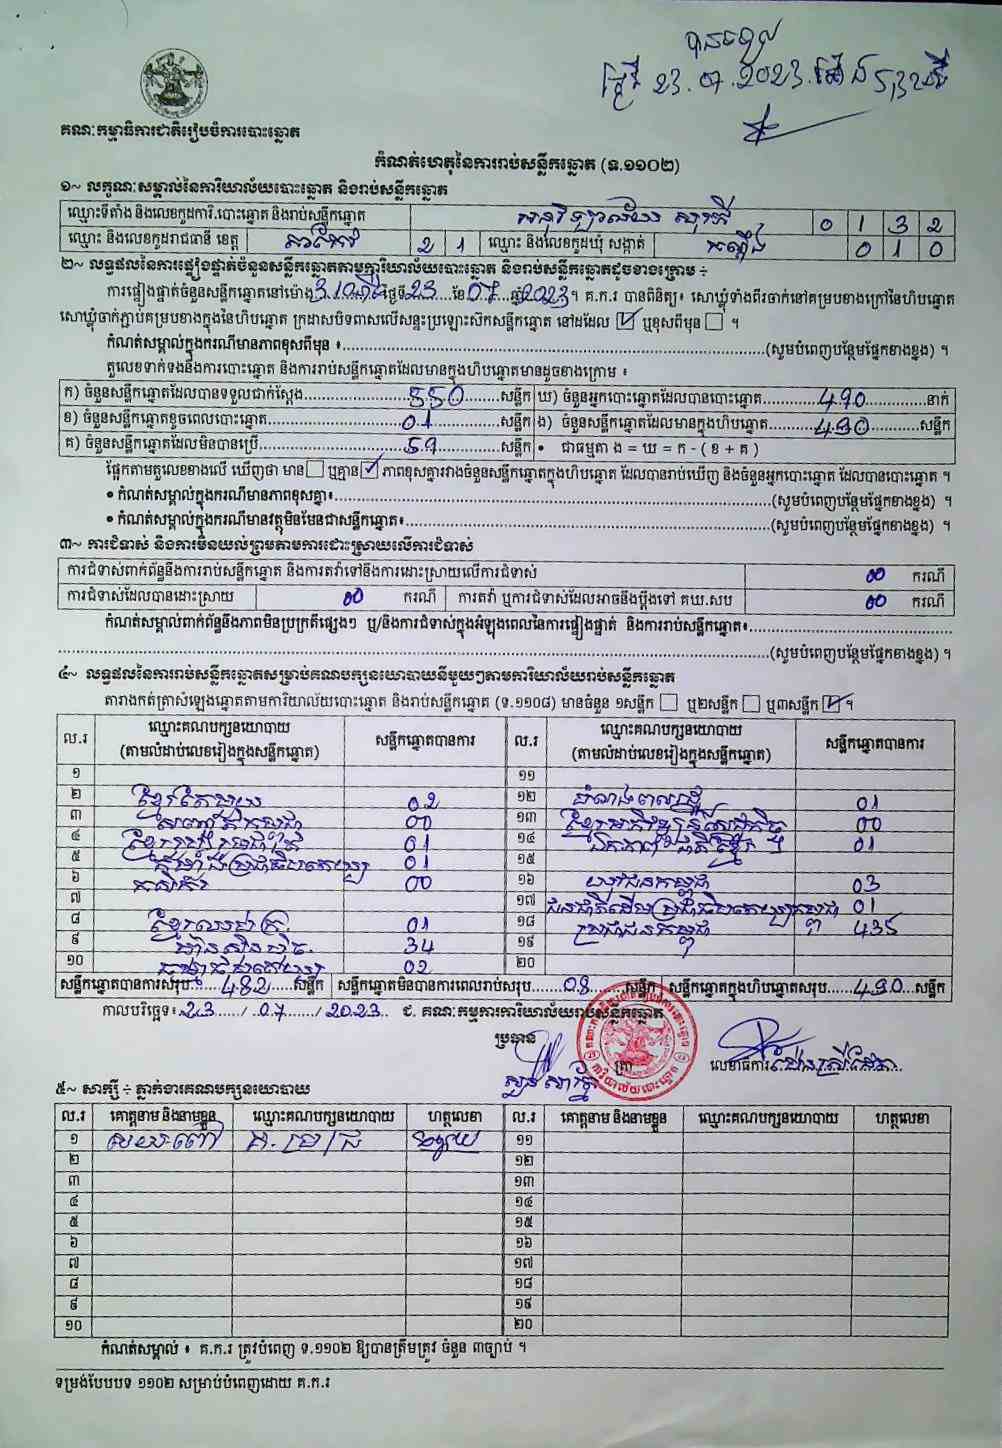 បានឃើញ
ថ្ងៃទី 23.07.2023
គណៈកម្មាធិការជាតិរៀបចំការបោះឆ្នោត
កំណត់ហេតុនៃការរាប់សន្លឹកឆ្នោត (ទ.១១០២)
១~ លក្ខណៈសម្គាល់នៃការិយាល័យបោះឆ្នោត និងរាប់សន្លឹកឆ្នោត
ឈ្មោះទីតាំង និងលេខកូដការិ.បោះឆ្នោត និងរាប់សន្លឹកឆ្នោត អនុវិទ្យាល័យ 0 1 3 2
ឈ្មោះ និងលេខកូដរាជធានី ខេត្ត តាកែវ 2 1 ឈ្មោះ និងលេខកូដឃុំ សង្កាត់ 0 1 0
២~ លទ្ធផលនៃការផ្ទៀងផ្ទាត់ចំនួនសន្លឹកឆ្នោតតាមការិយាល័យបោះឆ្នោត និងរាប់សន្លឹកឆ្នោតដូចខាងក្រោម ÷
ការផ្ទៀងផ្ទាត់ចំនួនសន្លឹកឆ្នោតនៅម៉ោង 3:10 ថ្ងៃទី 23 ខែ 07 ឆ្នាំ 2023។ គ.ក.រ បានពិនិត្យ៖ សោឃ្លុំទាំងពីរចាក់នៅគម្របខាងក្រៅនៃហិបឆ្នោត
សោឃ្លុំចាក់ភ្ជាប់គម្របខាងក្នុងនៃហិបឆ្នោត ក្រដាសបិទពាសលើសន្ទះប្រឡោះសិកសន្លឹកឆ្នោត នៅដដែល ☑ ឬខុសពីមុន ☐ ។
កំណត់សម្គាល់ក្នុងករណីមានភាពខុសពីមុន ៖ (សូមបំពេញបន្ថែមផ្នែកខាងខ្នង) ។
តួលេខទាក់ទងនឹងការបោះឆ្នោត និងការរាប់សន្លឹកឆ្នោតដែលមានក្នុងហិបឆ្នោតមានដូចខាងក្រោម ៖
ក) ចំនួនសន្លឹកឆ្នោតដែលបានទទួលជាក់ស្តែង 550 សន្លឹក ឃ) ចំនួនអ្នកបោះឆ្នោតដែលបានបោះឆ្នោត 490 នាក់
ខ) ចំនួនសន្លឹកឆ្នោតខូចពេលបោះឆ្នោត 01 សន្លឹក ង) ចំនួនសន្លឹកឆ្នោតដែលមានក្នុងហិបឆ្នោត 490 សន្លឹក
គ) ចំនួនសន្លឹកឆ្នោតដែលមិនបានប្រើ 59 សន្លឹក • ជាធម្មតា ង = ឃ = ក - ( ខ + គ )
ផ្អែកតាមតួលេខខាងលើ ឃើញថា មាន ☐ ឬគ្មាន ☑ ភាពខុសគ្នារវាងចំនួនសន្លឹកឆ្នោតក្នុងហិបឆ្នោត ដែលបានរាប់ឃើញ និងចំនួនអ្នកបោះឆ្នោត ដែលបានបោះឆ្នោត ។
• កំណត់សម្គាល់ក្នុងករណីមានភាពខុសគ្នា៖ (សូមបំពេញបន្ថែមផ្នែកខាងខ្នង) ។
• កំណត់សម្គាល់ក្នុងករណីមានវត្ថុមិនមែនជាសន្លឹកឆ្នោត៖ (សូមបំពេញបន្ថែមផ្នែកខាងខ្នង) ។
៣~ ការជំទាស់ និងការមិនយល់ព្រមតាមការដោះស្រាយលើការជំទាស់
ការជំទាស់ពាក់ព័ន្ធនឹងការរាប់សន្លឹកឆ្នោត និងការតវ៉ាទៅនឹងការដោះស្រាយលើការជំទាស់ 00 ករណី
ការជំទាស់ដែលបានដោះស្រាយ 00 ករណី ការតវ៉ា ឬការជំទាស់ដែលអាចនឹងប្តឹងទៅ គឃ.សប 00 ករណី
កំណត់សម្គាល់ពាក់ព័ន្ធនឹងភាពមិនប្រក្រតីផ្សេងៗ ឬ/និងការជំទាស់ក្នុងអំឡុងពេលនៃការផ្ទៀងផ្ទាត់ និងការរាប់សន្លឹកឆ្នោត៖
(សូមបំពេញបន្ថែមផ្នែកខាងខ្នង) ។
៤~ លទ្ធផលនៃការរាប់សន្លឹកឆ្នោតសម្រាប់គណបក្សនយោបាយនីមួយៗតាមការិយាល័យរាប់សន្លឹកឆ្នោត
តារាងកត់ត្រាសំឡេងឆ្នោតតាមការិយាល័យបោះឆ្នោត និងរាប់សន្លឹកឆ្នោត (ទ.១១០៨) មានចំនួន ១សន្លឹក ☐ ឬ២សន្លឹក ☐ ឬ៣សន្លឹក ☑ ។
ល.រ ឈ្មោះគណបក្សនយោបាយ (តាមលំដាប់លេខរៀងក្នុងសន្លឹកឆ្នោត) សន្លឹកឆ្នោតបានការ ល.រ ឈ្មោះគណបក្សនយោបាយ (តាមលំដាប់លេខរៀងក្នុងសន្លឹកឆ្នោត) សន្លឹកឆ្នោតបានការ
១ ១១
២ ខ្មែរតែមួយ 02 ១២ តំណាងពលរដ្ឋ 01
៣ 00 ១៣ ខ្មែរអភិវឌ្ឍន៍សេដ្ឋកិច្ច 00
៤ ខ្មែររួបរួមជាតិ 01 ១៤ ឯកភាពជាតិខ្មែរ 01
៥ សំបុកឃ្មុំ 01 ១៥
៦ កសិករ 00 ១៦ យុវជនកម្ពុជា 03
៧ ១៧ ជនជាតិដើមប្រជាធិបតេយ្យកម្ពុជា 01
៨ 01 ១៨ ប្រជាជនកម្ពុជា 435
៩ ហ៊្វុនស៊ិនប៉ិច 34 ១៩
១០ 02 ២០
សន្លឹកឆ្នោតបានការសរុប 482 សន្លឹក សន្លឹកឆ្នោតមិនបានការពេលរាប់សរុប 08 សន្លឹក សន្លឹកឆ្នោតក្នុងហិបឆ្នោតសរុប 490 សន្លឹក
កាលបរិច្ឆេទ៖ 23 / 07 / 2023 ជ. គណៈកម្មការការិយាល័យរាប់សន្លឹកឆ្នោត
ប្រធាន
ត្រា លេខាធិការ
៥~ សាក្សី ÷ ភ្នាក់ងារគណបក្សនយោបាយ
ល.រ គោត្តនាម និងនាមខ្លួន ឈ្មោះគណបក្សនយោបាយ ហត្ថលេខា ល.រ គោត្តនាម និងនាមខ្លួន ឈ្មោះគណបក្សនយោបាយ ហត្ថលេខា
១ គ.ប្រ.ជ ១១
២ ១២
៣ ១៣
៤ ១៤
៥ ១៥
៦ ១៦
៧ ១៧
៨ ១៨
៩ ១៩
១០ ២០
កំណត់សម្គាល់ ៖ គ.ក.រ ត្រូវបំពេញ ទ.១១០២ ឱ្យបានត្រឹមត្រូវ ចំនួន ៣ច្បាប់ ។
ទម្រង់បែបបទ ១១០២ សម្រាប់បំពេញដោយ គ.ក.រ